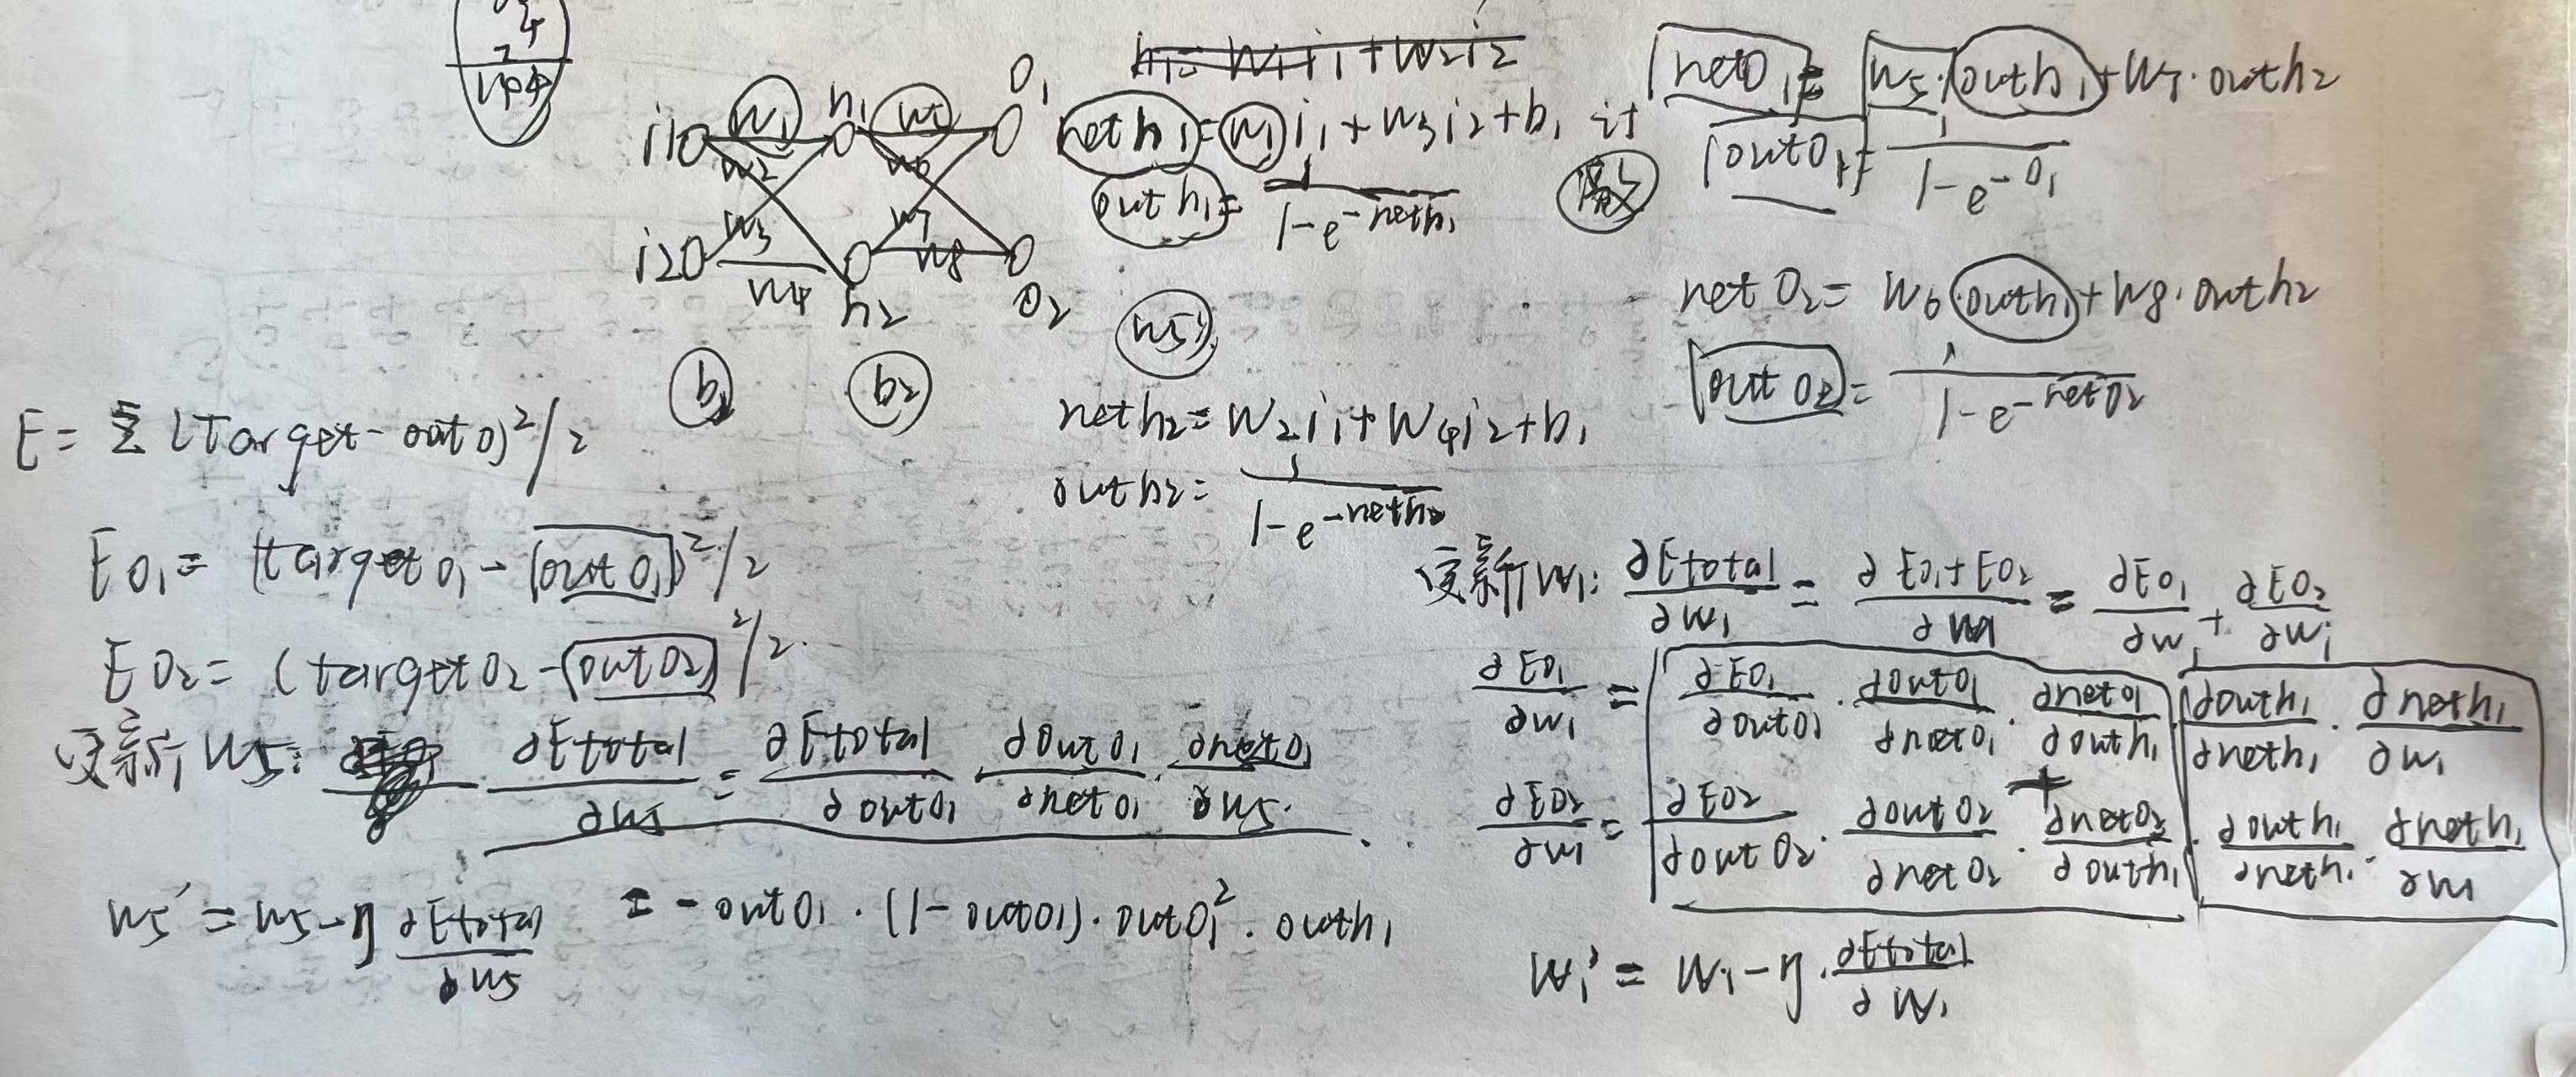 h₁= w₁i₁+w₂i₂
i1 w₁ h₁ w₅ O₁
w₂ w₆
w₃ w₇
i2 w₄ h₂ w₈ O₂
b₁ b₂
net h₁ = w₁ i₁ + w₃ i₂ + b₁
out h₁ = 1/(1-e^(-net h₁))
w₅'
net h₂ = w₂ i₁ + w₄ i₂ + b₁
out h₂ = 1/(1-e^(-net h₂))
net O₁ = w₅·out h₁ + w₇·out h₂
out O₁ = 1/(1-e^(-O₁))
net O₂ = w₆ ·out h₁ + w₈·out h₂
out O₂ = 1/(1-e^(-net O₂))
E = Σ (Target - out O)²/2
E O₁ = (target O₁ - (out O₁))²/2
E O₂ = (target O₂ - (out O₂))²/2
更新 w₅: ∂Etotal/∂w₅ = ∂Etotal/∂out O₁ · ∂out O₁/∂net O₁ · ∂net O₁/∂w₅
= - out O₁ · (1 - out O₁) · out O₁² · out h₁
w₅' = w₅ - η ∂Etotal/∂w₅
更新 w₁: ∂Etotal/∂w₁ = ∂ EO₁+EO₂/∂w₁ = ∂EO₁/∂w₁ + ∂EO₂/∂w₁
∂EO₁/∂w₁ = ∂EO₁/∂out O₁ · ∂out O₁/∂net O₁ · ∂net O₁/∂out h₁ · ∂out h₁/∂net h₁ · ∂net h₁/∂w₁
+
∂EO₂/∂w₁ = ∂EO₂/∂out O₂ · ∂out O₂/∂net O₂ · ∂net O₂/∂out h₁ · ∂out h₁/∂net h₁ · ∂net h₁/∂w₁
w₁' = w₁ - η · ∂Etotal/∂w₁